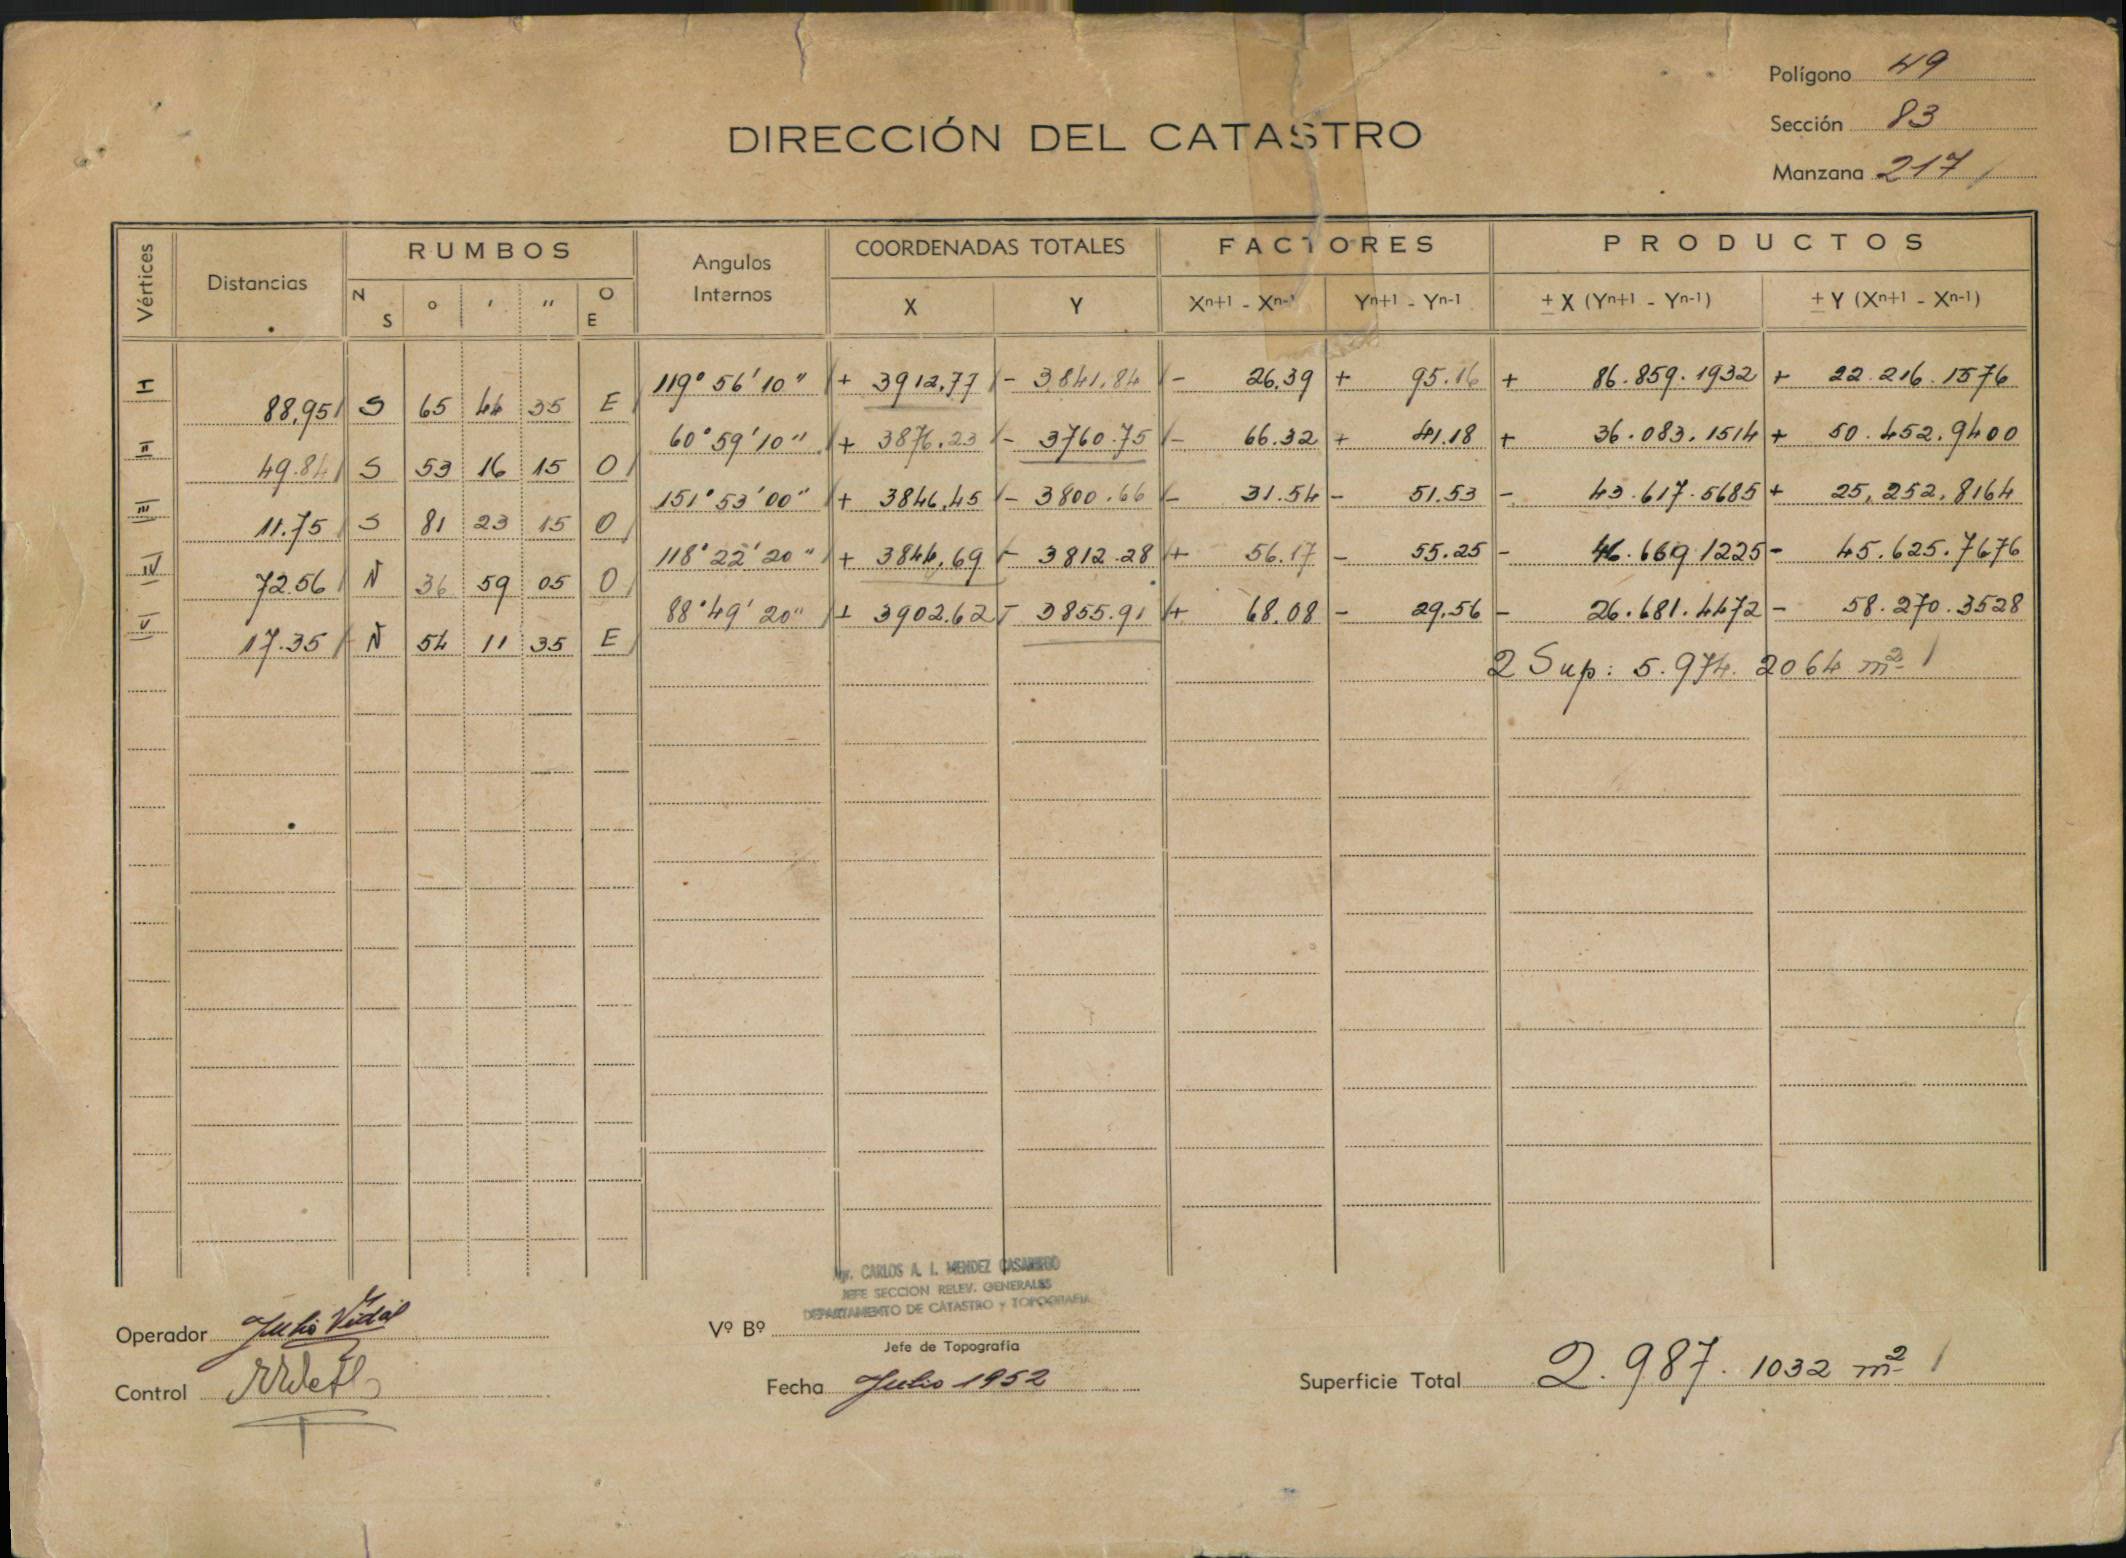 Polígono 49
Sección 83
Manzana 217
DIRECCIÓN DEL CATASTRO
Vértices Distancias RUMBOS Angulos Internos COORDENADAS TOTALES FACTORES PRODUCTOS
N S ° ' " O E X Y Xn+1 - Xn-1 Yn+1 - Yn-1 ± X (Yn+1 - Yn-1) ± Y (Xn+1 - Xn-1)
I 119° 56' 10" + 3912,77 - 3841,84 - 26,39 + 95.16 + 86.859.1932 + 22.216.1576
88,95 S 65 44 35 E
II 60° 59' 10" + 3876,23 - 3760.75 - 66.32 + 41.18 + 36.083.1514 + 50.452.9400
49.84 S 53 16 15 O
III 151° 53' 00" + 3846,45 - 3800.66 - 31.54 - 51.53 - 43.617.5685 + 25,252,8164
11.75 S 81 23 15 O
IV 118° 22' 20" + 3844,69 - 3812.28 + 56.17 - 55.25 - 46.669.1225 - 45.625.7676
72.56 N 36 59 05 O
V 88° 49' 20" + 3902.62 - 3855.91 + 68.08 - 29,56 - 26.681.4472 - 58.270.3528
17.35 N 54 11 35 E
2 Sup: 5.974.2064 m²
Agr. CARLOS A. I. MENDEZ CASARIEGO
JEFE SECCION RELEV. GENERALES
DEPARTAMENTO DE CATASTRO y TOPOGRAFIA
Operador Julio Vidal Vº Bº
Jefe de Topografía
Control Fecha Julio 1952 Superficie Total 2.987.1032 m²